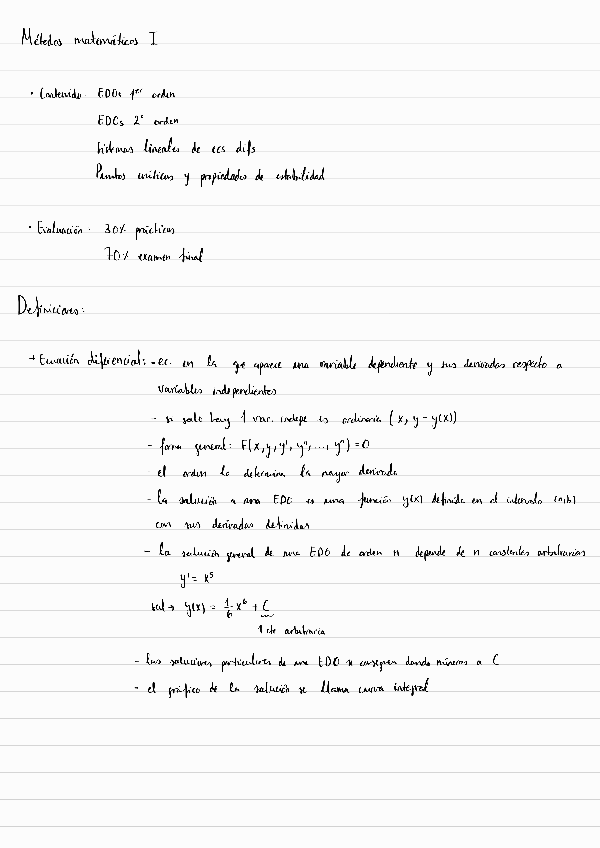 Métodos matemáticos I
· Contenido: EDOs 1er orden
EDOs 2º orden
Sistemas lineales de ecs difs
Puntos críticos y propiedades de estabilidad
· Evaluación: 30% prácticas
70% examen final
Definiciones:
→ Ecuación diferencial: - ec. en la que aparece una variable dependiente y sus derivadas respecto a
variables independientes
- si solo hay 1 var. indepe es ordinaria (x, y = y(x))
- forma general: F(x, y, y', y'', ..., yⁿ) = 0
- el orden lo determina la mayor derivada
- la solución a una EDO es una función y(x) definida en el intervalo (a,b)
con sus derivadas definidas
- la solución general de una EDO de orden n depende de n constantes arbitrarias
y' = x⁵
sol → y(x) = 1/6 · x⁶ + C
1 cte arbitraria
- las soluciones particulares de una EDO se consiguen dando números a C
- el gráfico de la solución se llama curva integral